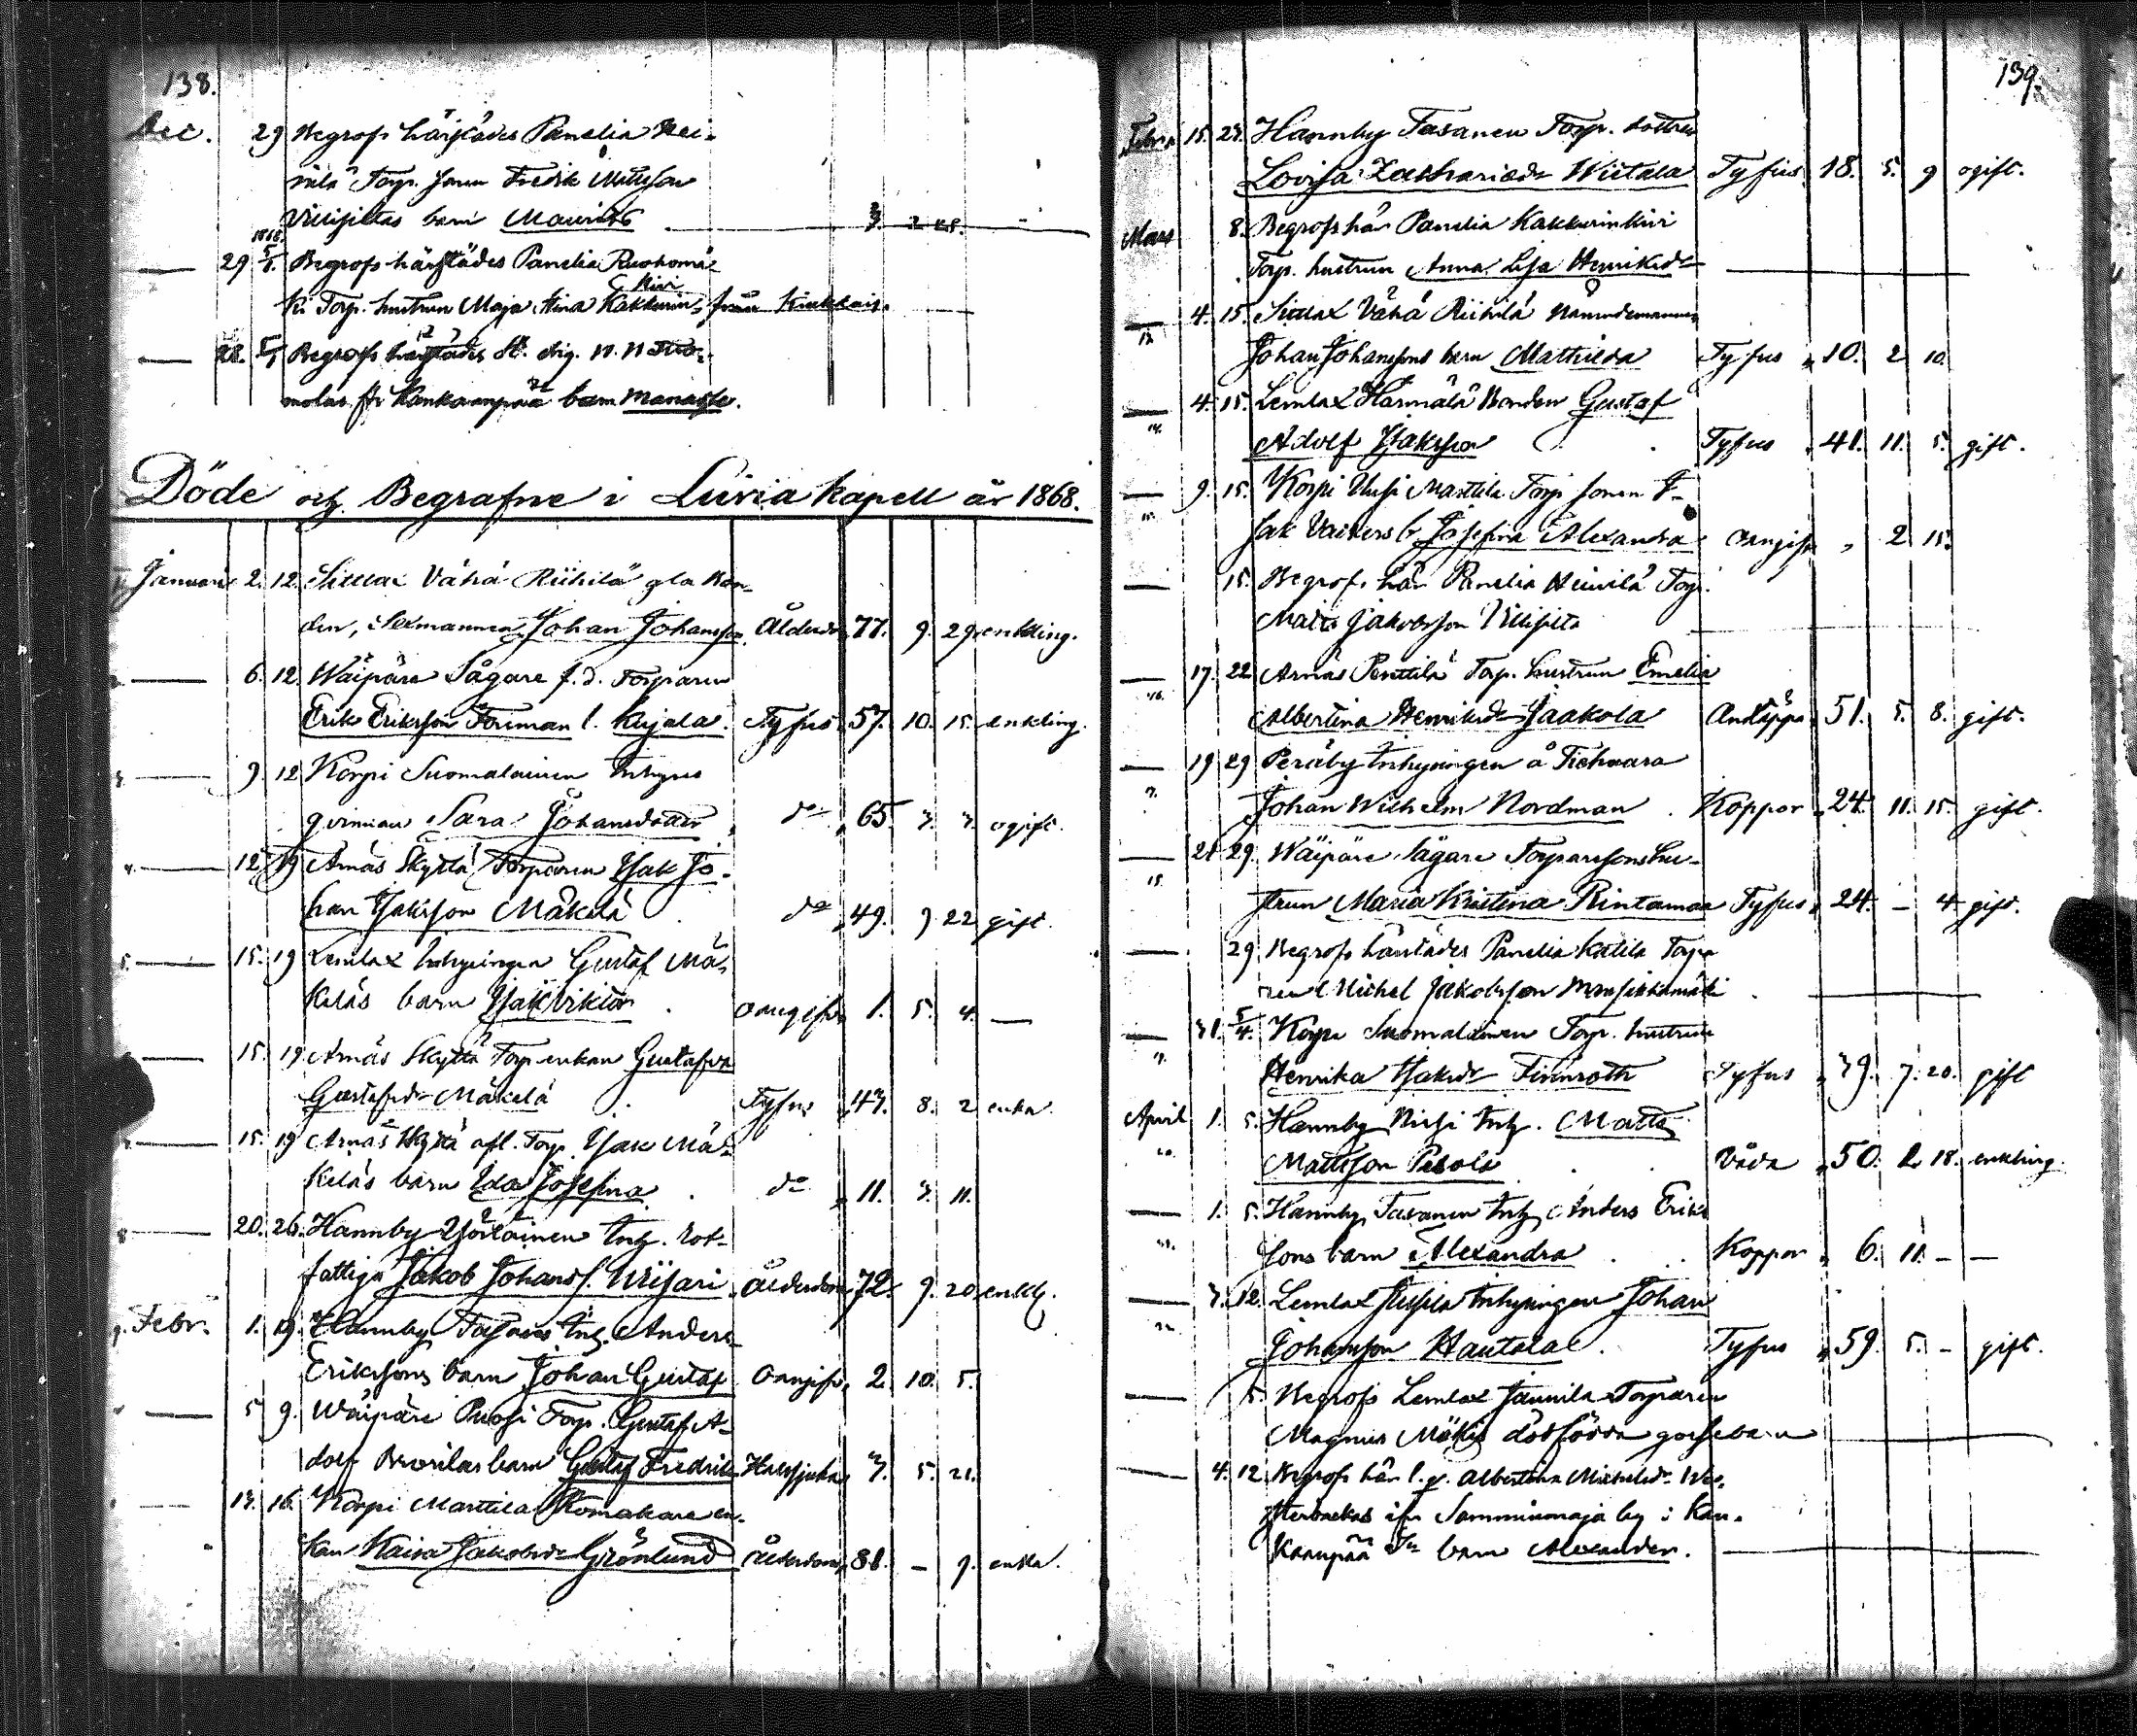 138.
Dec. 29 Begrofs härstädes Panelia Hei-
nilä Torp. sonen Fredik Mattsson
Villipiltas barn Maurits 3. 2 28. -
1868.
29 5/1. Begrofs härstädes Panelia Ruohomä-
ki Torp. hustrun Maja Stina Kakkurin- från Kiukkais.
kivi
28. 5/1 Begrofs härstädes
molas fr. Kankaanpää barn Manasse.
Döde och Begrafne i Luvia kapell år 1868.
Januari 2. 12. Sitlax Vähä Riihilä gla bon-
den, Sexmannen Johan Johansson Ålderdom 77. 9. 29. enkling.
6. 12. Wäipäre Sågare f.d. Torparen
Erik Eriksson Foriman l. Kujala. Tyfus 57. 10. 15. enkling.
9. 12 Korpi Suomalainen Inhyses
qvinnan Sara Johansdotter do 65. 3. 3. ogift.
4. 12. 19 Arnäs Skyttä Torparen Isak Jo-
han Isaksson Mäkelä do 49. 9. 22 gift.
5. 15. 19 Lemlax Inhysingen Gustaf Mä-
keläs barn Isak Viktor oangifv. 1. 5. 4. —
15. 19 Arnäs Skyttä Torp. enkan Gustafva
Gustafsdr Mäkelä Tyfus 43. 8. 2 enka.
15. 19 Arnäs Skyttä afl. Torp. Isak Mä-
keläs barn Ida Josefina do 11. 3. 11.
20. 26. Hannby Yörläinen Inh. rot-
fattiga Jakob Johanss. Wiisari Ålderdom 72. 9. 20 enkl.
9. Febr. 1. 19. Hannby Tasanen Inh. Anders
Erikssons barn Johan Gustaf Oangifv. 2. 10. 5.
5 9. Wäipäre Puosi Torp. Gustaf A-
dolf barn Gustaf Fredrik Halssjuka 3. 5. 21.
13. 16. Korpi Marttila Skomakare en-
kan Kaisa Jakobsdr Grönlund Ålderdom 81. — 9. enka.
139.
Febr. 15. 23. Hannby Tasanen Torp. dottren
Lovisa Zachariædr Wiitala Tyfus. 18. 5. 9 ogift.
Mars 8. Begrofs här Panelia Kakkurinkivi
Torp. hustrun Anna Lisa Henriksdr
4. 15. Sitlax Vähä Riihilä Nämndemannen
13.
Johan Johanssons barn Mathilda Tyfus 10. 2 10.
4. 15. Lemlax Härmälä Bonden Gustaf
14.
Adolf Isaksson Tyfus 41. 11. 5. gift.
9. 15. Korpi Uusi Marttila Torp. sonen F.
15.
Isak b. Josefina Alexandra Oangifv. 2 15.
15. Begrofs här Panelia Heinilä Torp.
Matts Jakobsson Villipilta
17. 22 Arnäs Penttilä Torp. hustrun Emelia
16.
Albertina Henriksdr Jaakola Andtäppa 51. 5. 8. gift.
19 29 Peräby Inhysingen å Tiehaara
Johan Wilhelm Nordman Koppor 24. 11. 15. gift.
21 29. Wäipäre Sågare Torparesons hu-
strun Maria Kristina Rintamaa Tyfus 24. — 4 gift.
29 Begrofs härstädes Panelia Katila Torpa
ren Michel Jakobsson Mansikkamäki
31. 5/4. Korpi Suomalainen Torp. hustrun
Henrika Isaksdr Finnroth Tyfus 39. 7. 20. gift
April 1. 5. Hannby Inh. Matts
20.
Mattsson Pelola Våda 50. 2 18. enkling.
1. 5. Hannby Tasanen Inh. Anders Eriks
21.
sons barn Alexandra Koppor 6. 11. — —
3. 12. Lemlax Jussila Inhysingen Johan
22.
Johansson Hautala Tyfus 59. 5. — gift.
5. Begrofs Lemlax Jaunila Torparen
Magnus Mäkis dödfödda gossebarn
4. 12. Begrofs här l. q. Albertina Michelsdr Wes-
terbackas ifr. Samminmaja by i Kan-
kaanpää Sn barn Alexander.